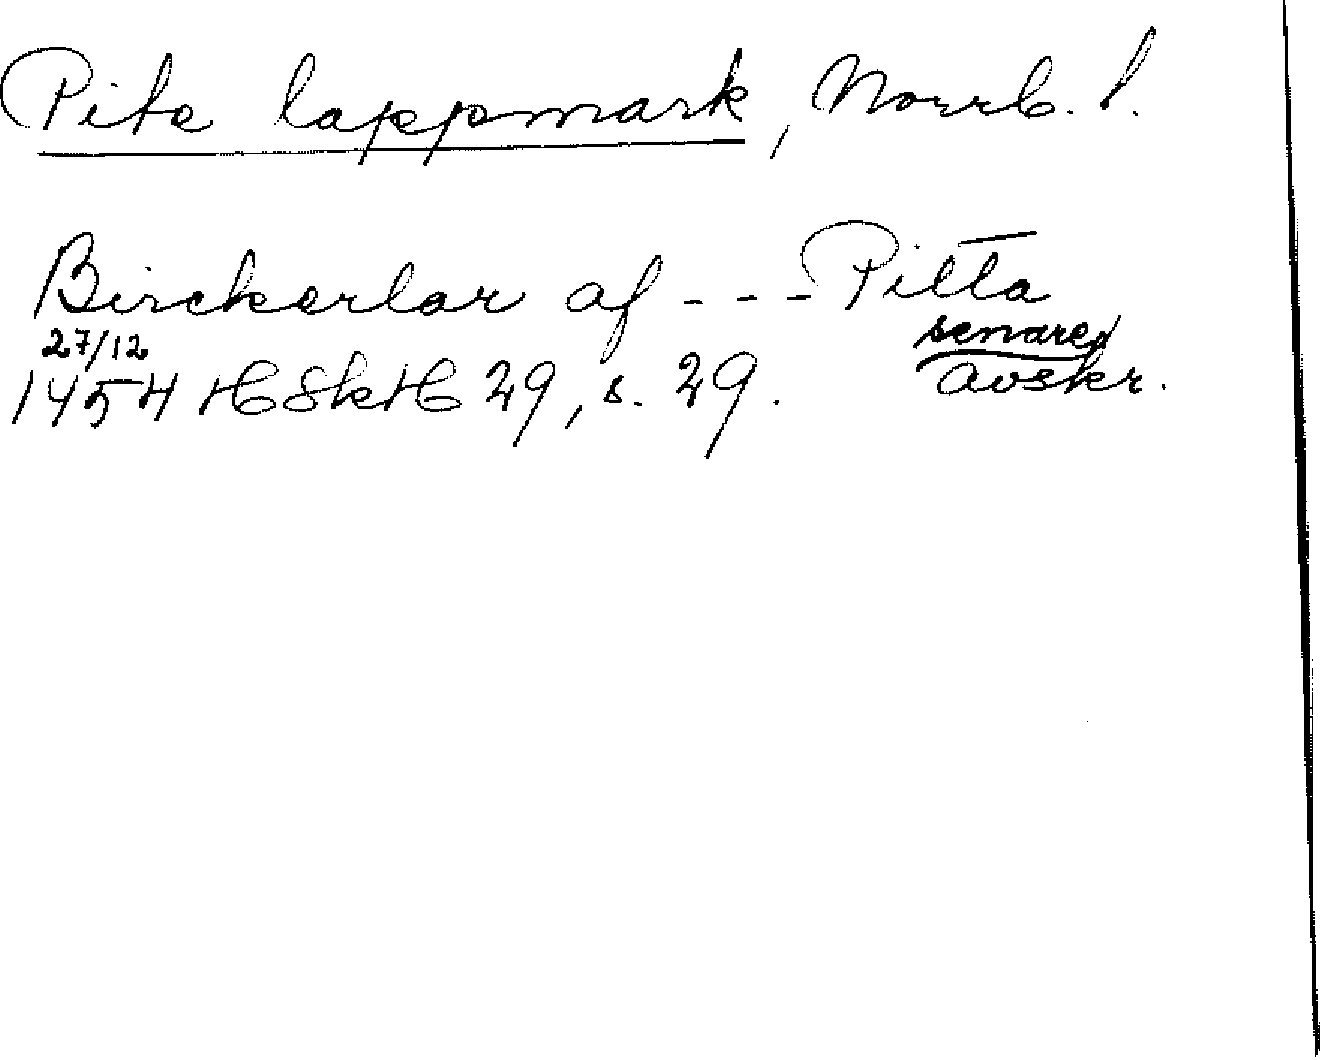 Pite lappmark, Norrb. l.
Birckarlar af - - - Pitta
27/12 senare
1454 HSkH 29, s. 29. avskr.